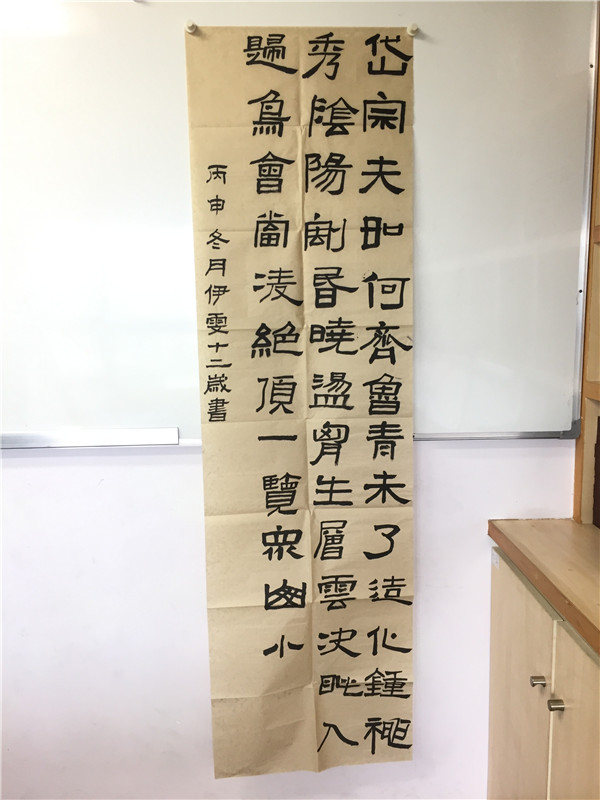 岱宗夫如何齊魯青未了造化鍾神
秀陰陽割昏曉盪胷生層雲決眦入
歸鳥會當凌絕頂一覽眾山小
丙申冬月伊雯十二歲書